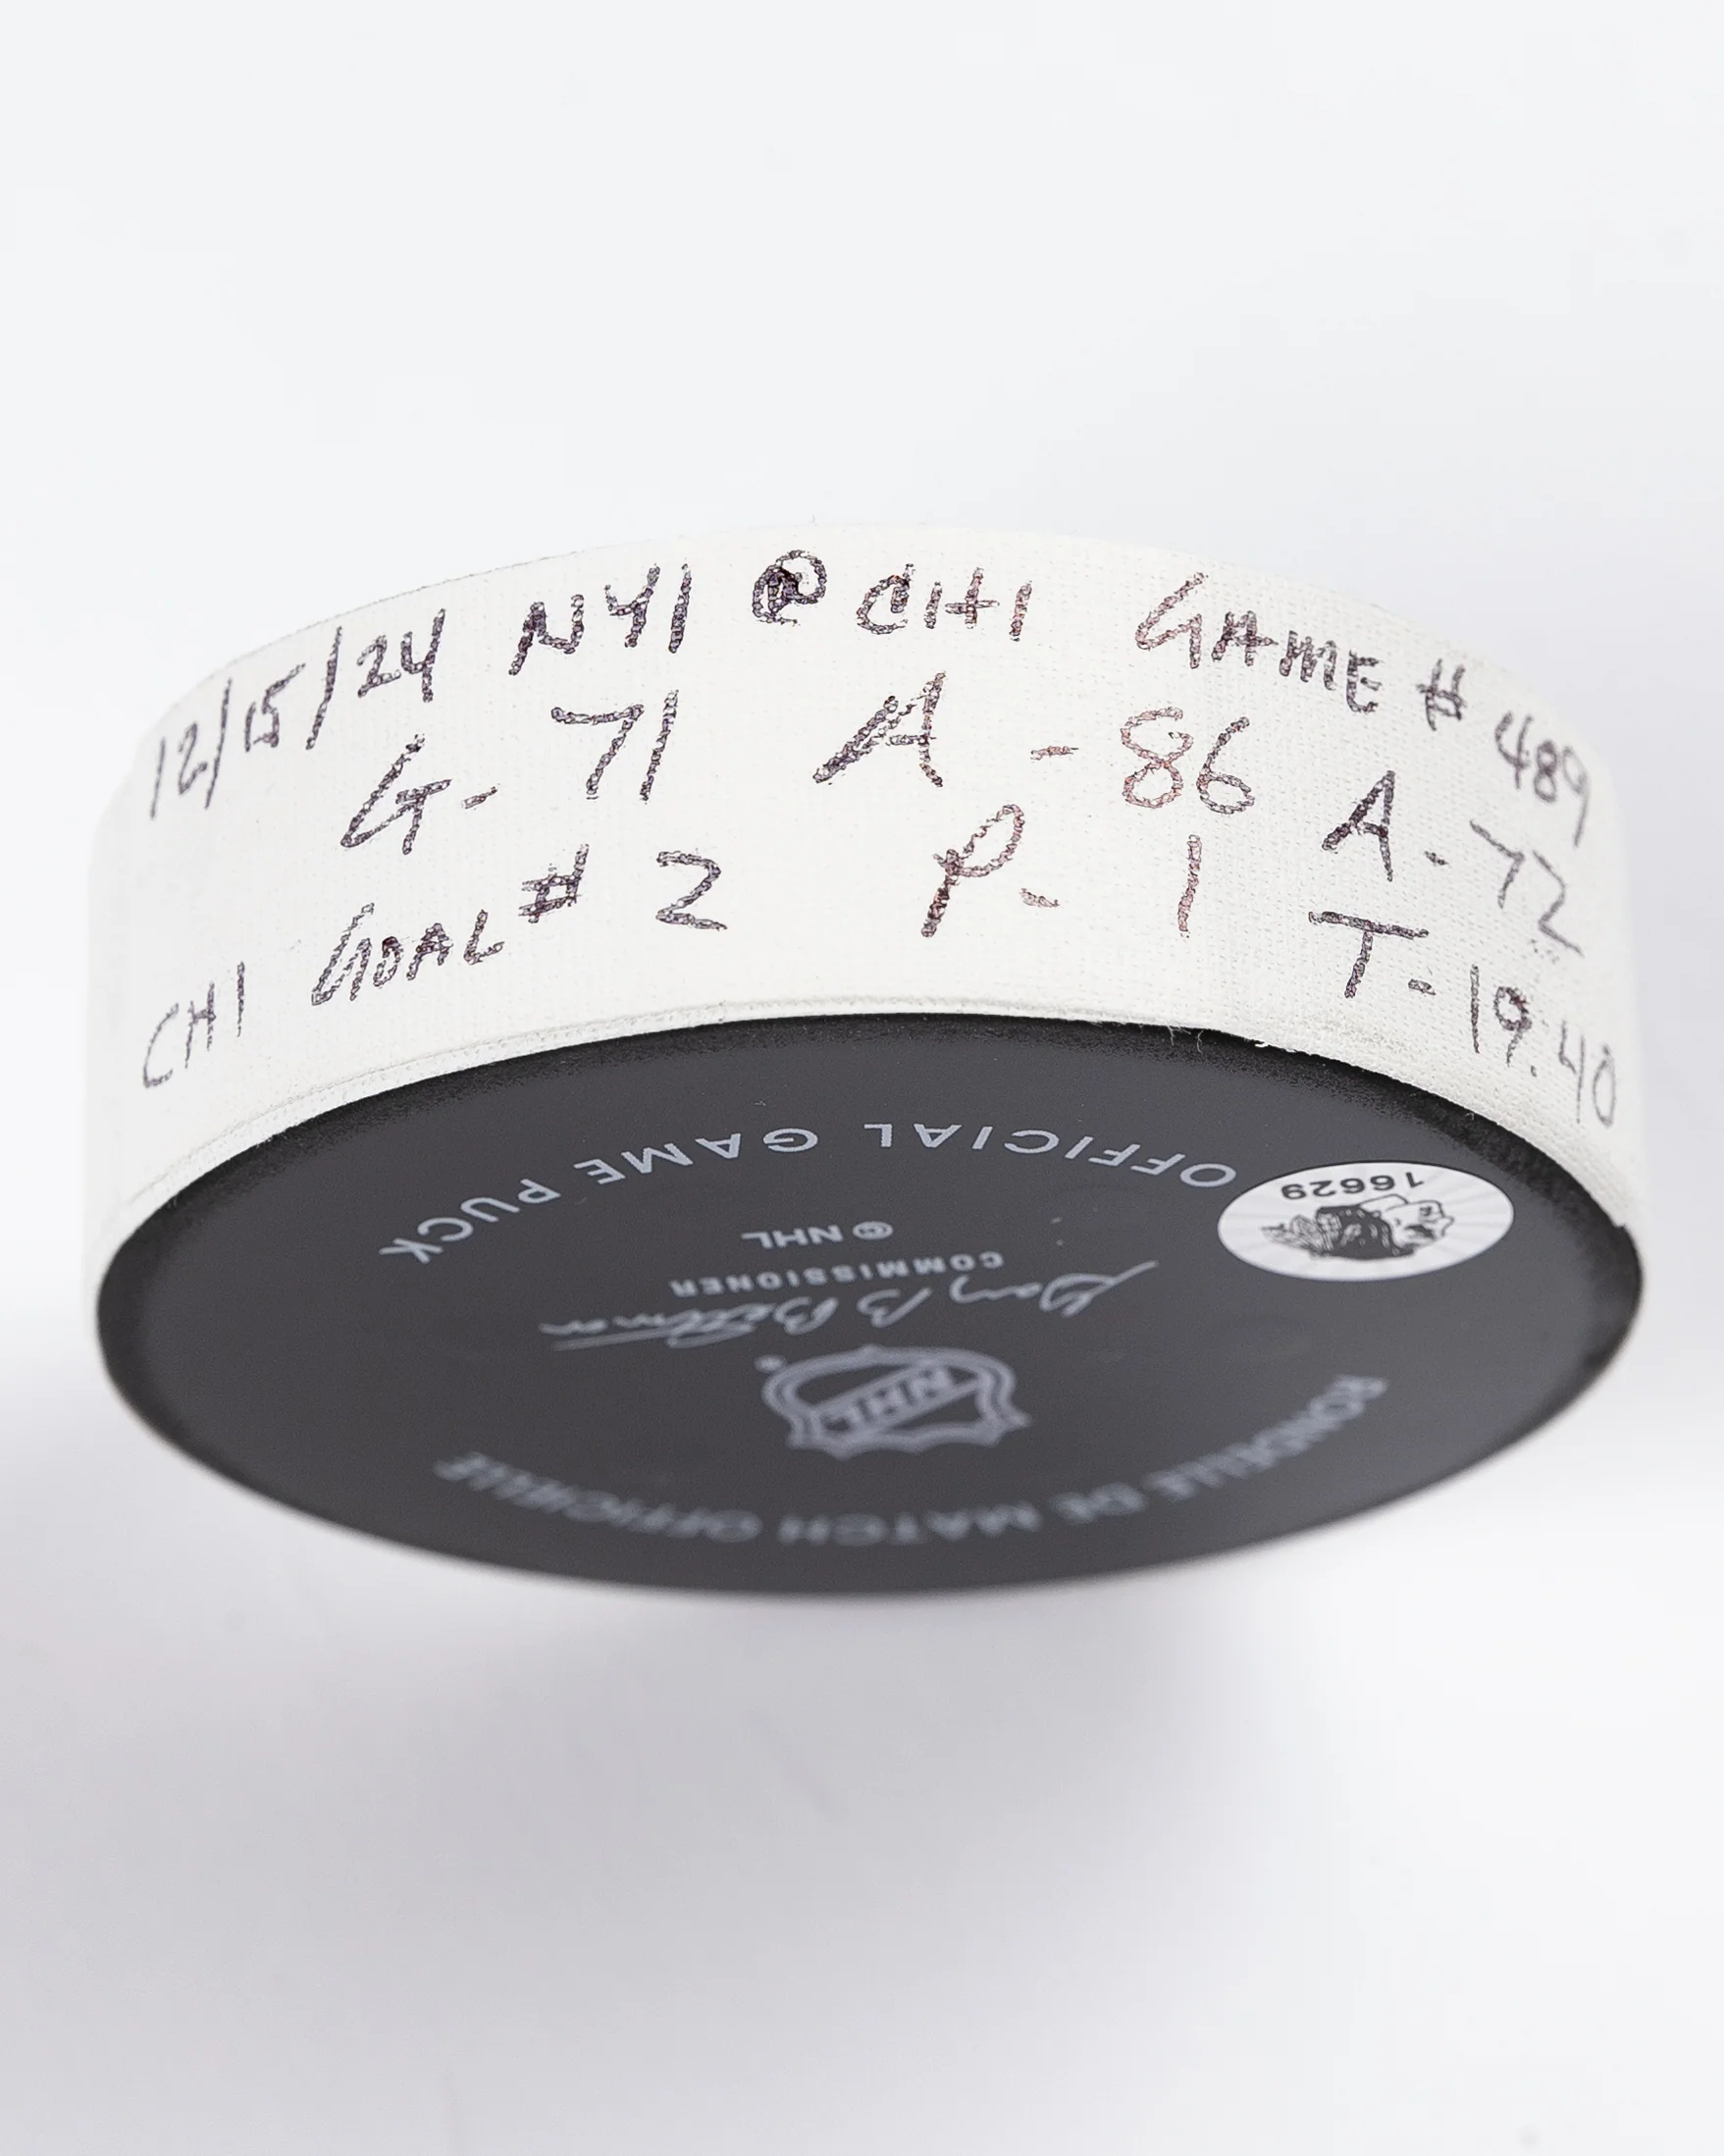 12/15/24 NYI @ CHI GAME # 489
G- 71 A -86 A-72
CHI GOAL # 2 P- 1 T-19:40
OFFICIAL GAME PUCK
16629
© NHL
COMMISSIONER
Gary B Bettman
NHL
RONDELLE DE MATCH OFFICIELLE